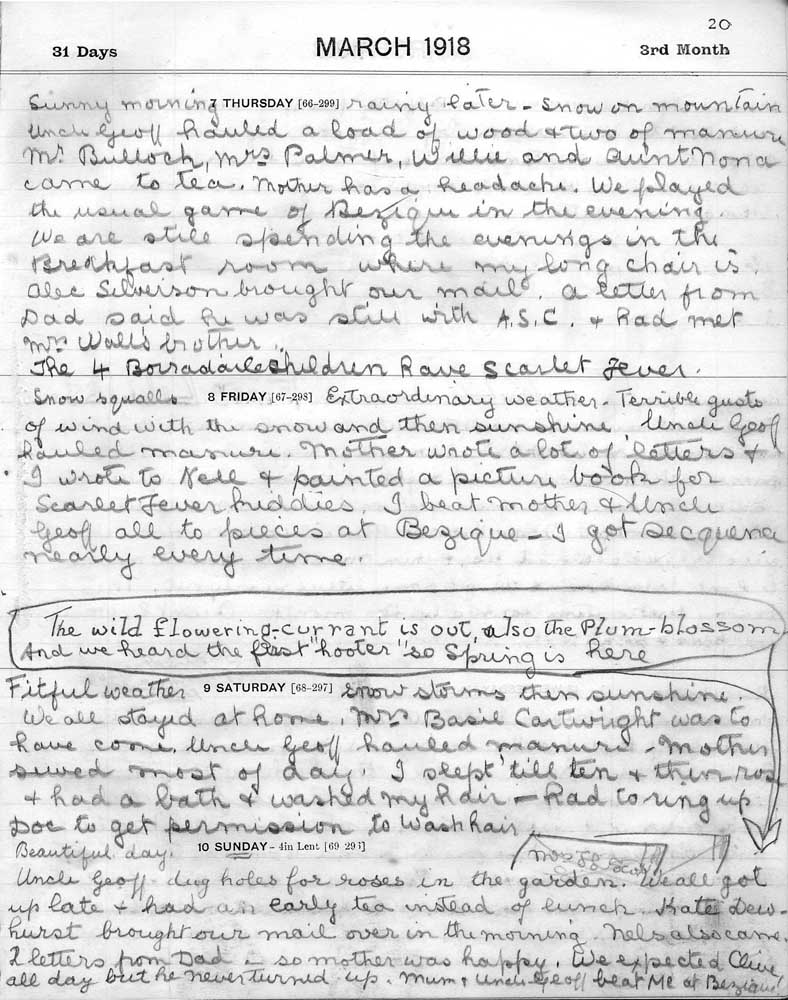 20
31 Days MARCH 1918 3rd Month
Sunny morning 7 THURSDAY [66-299] rainy later - Snow on mountain
Uncle Geoff hauled a load of wood & two of manure
Mr Bulloch, Mrs Palmer, Willie and Aunt Nona
came to tea. Mother has a headache. We played
the usual game of Bezique in the evening.
We are still spending the evenings in the
Breakfast room where my long chair is.
Alec Silverson brought our mail. A letter from
Dad said he was still with A.S.C. & had met
Mrs Walls brother.
The 4 Borradaile children have Scarlet Fever.
Snow squalls 8 FRIDAY [67-298] Extraordinary weather - Terrible gusts
of wind with the snow and then sunshine. Uncle Geoff
hauled manure. Mother wrote a lot of letters &
I wrote to Nell & painted a picture book for
Scarlet Fever kiddies. I beat Mother & Uncle
Geoff all to pieces at Bezique - I got Secquena
nearly every time.
The wild flowering-currant is out, also the Plum-blossom
And we heard the first "hooter" so Spring is here
Fitful weather 9 SATURDAY [68-297] Snow storms then sunshine.
We all stayed at home. Mrs Basil Cartwright was to
have come. Uncle Geoff hauled manure - Mother
sewed most of day. I slept 'till ten & then rose
& had a bath & washed my hair - had to ring up
Doc to get permission to wash hair.
Beautiful day. 10 SUNDAY - 4in Lent [69 296]
Uncle Geoff dug holes for roses in the garden. We all got
up late & had an early tea instead of lunch. Kate Dew-
hurst brought our mail over in the morning. Nels also came.
2 letters from Dad - so mother was happy. We expected Clive
all day but he never turned up. Mum & Uncle Geoff beat Me at Bezique!